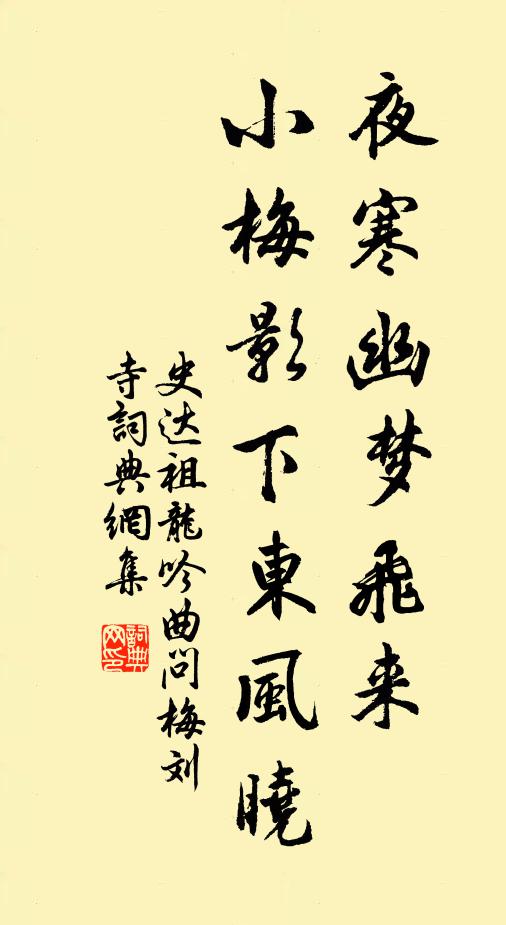 夜寒幽梦飛来
小梅影下東風曉
史达祖龍吟曲问梅刘
寺詞典網集
詞典网印